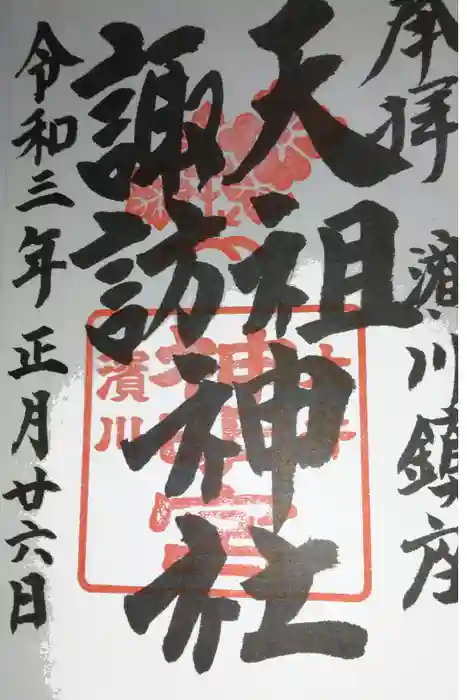 奉拝 濵川鎮座
天祖神社
諏訪神社
令和三年正月廿六日
濱川
神
宮